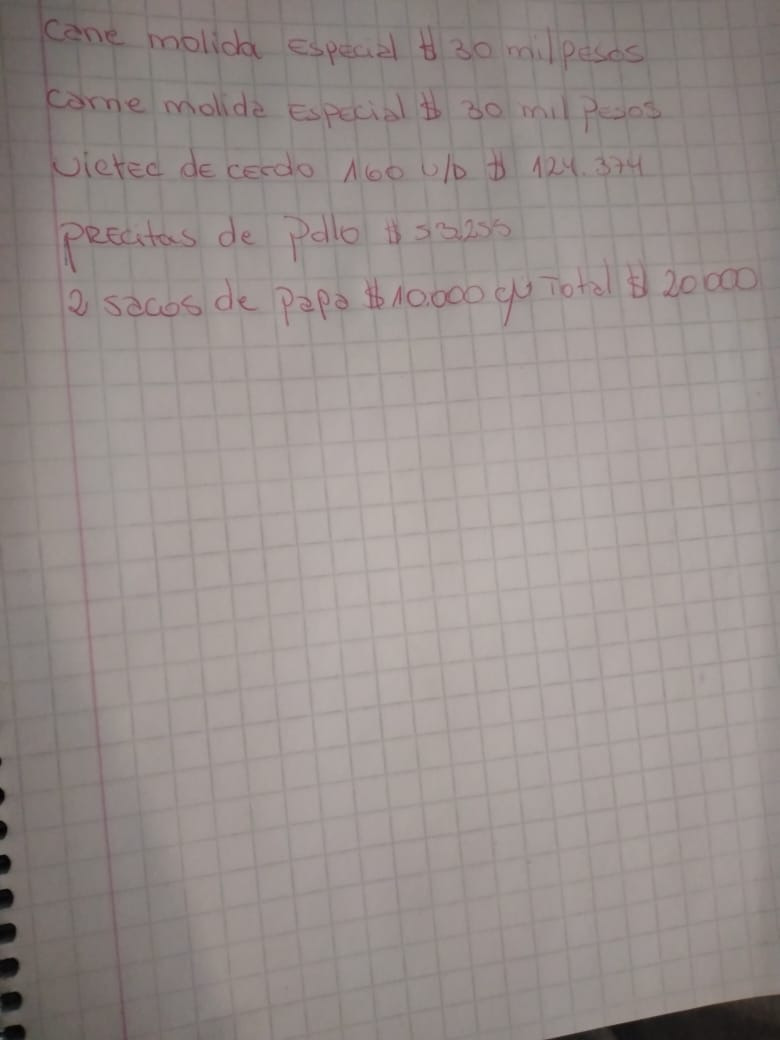 Cane molida Especial $ 30 mil pesos
Carne molida Especial $ 30 mil Pesos
Vietec de cerdo 160 U/D $ 124.374
PREcitas de Pollo $ 53.255
2 sacos de papa $ 10.000 c/u Total $ 20000